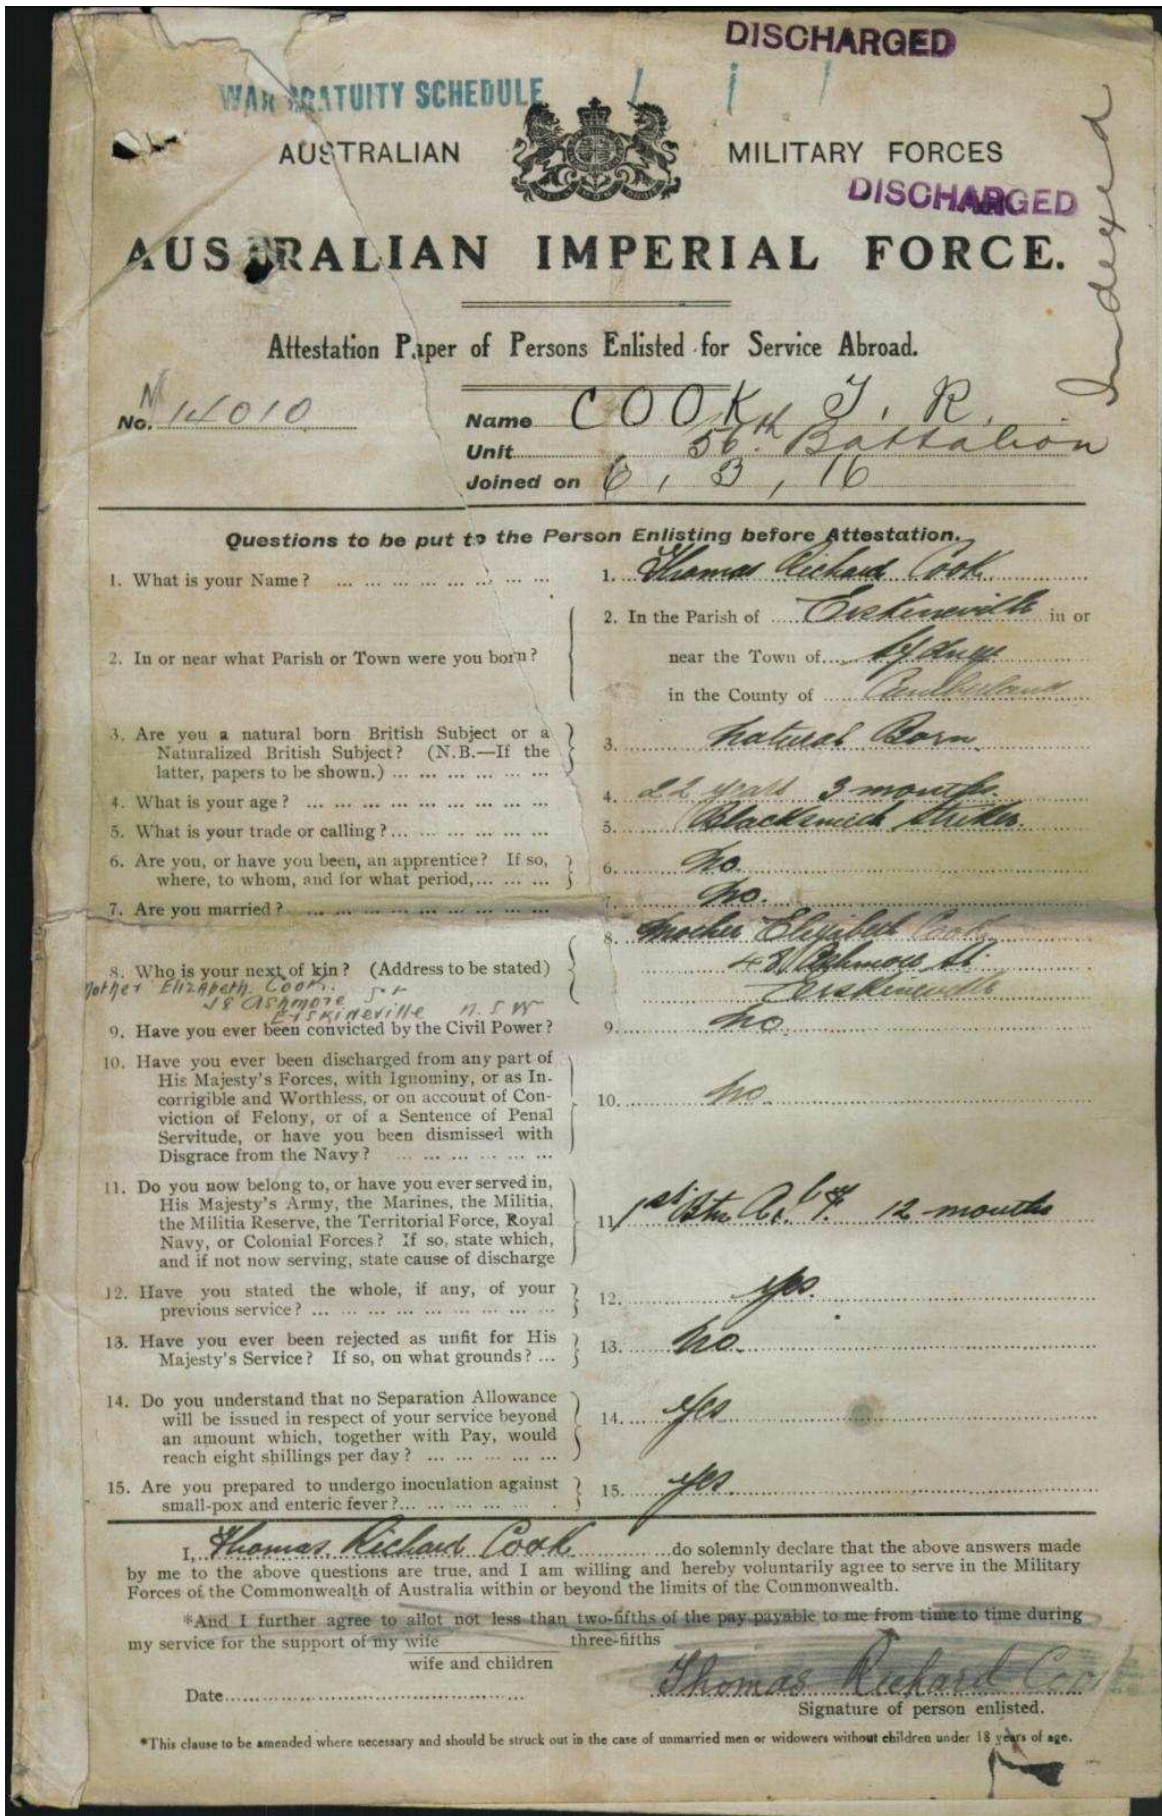 DISCHARGED
WAR GRATUITY SCHEDULE
AUSTRALIAN MILITARY FORCES
DISCHARGED
Indexed
AUSTRALIAN IMPERIAL FORCE.
Attestation Paper of Persons Enlisted for Service Abroad.
N
No. 14010
Name COOK, T. R.
Unit 56th Battalion
Joined on 6, 3, 16
Questions to be put to the Person Enlisting before Attestation.
1. What is your Name? ... 1. Thomas Richard Cook
2. In or near what Parish or Town were you born? 2. In the Parish of Erskineville in or
near the Town of Sydney
in the County of Cumberland
3. Are you a natural born British Subject or a
Naturalized British Subject? (N.B.—If the
latter, papers to be shown.) ... 3. Natural Born
4. What is your age? ... 4. 22 years 3 months.
5. What is your trade or calling? ... 5. Blacksmith Striker.
6. Are you, or have you been, an apprentice? If so,
where, to whom, and for what period, ... 6. No.
7. Are you married? ... 7. No.
8. Who is your next of kin? (Address to be stated) 8. Mother Elizabeth Cook
48 Ashmore St.
Erskineville
Mother Elizabeth Cook.
48 Ashmore St
Erskineville N.S.W
9. Have you ever been convicted by the Civil Power? 9. No.
10. Have you ever been discharged from any part of
His Majesty's Forces, with Ignominy, or as In-
corrigible and Worthless, or on account of Con-
viction of Felony, or of a Sentence of Penal
Servitude, or have you been dismissed with
Disgrace from the Navy? ... 10. No
11. Do you now belong to, or have you ever served in,
His Majesty's Army, the Marines, the Militia,
the Militia Reserve, the Territorial Force, Royal
Navy, or Colonial Forces? If so, state which,
and if not now serving, state cause of discharge 11. 1st Btn 12 months
12. Have you stated the whole, if any, of your
previous service? ... 12. yes.
13. Have you ever been rejected as unfit for His
Majesty's Service? If so, on what grounds? ... 13. No.
14. Do you understand that no Separation Allowance
will be issued in respect of your service beyond
an amount which, together with Pay, would
reach eight shillings per day? ... 14. Yes
15. Are you prepared to undergo inoculation against
small-pox and enteric fever? ... 15. Yes
I, Thomas Richard Cook do solemnly declare that the above answers made
by me to the above questions are true, and I am willing and hereby voluntarily agree to serve in the Military
Forces of the Commonwealth of Australia within or beyond the limits of the Commonwealth.
*And I further agree to allot not less than two-fifths of the pay payable to me from time to time during
three-fifths
my service for the support of my wife
wife and children
Date
Thomas Richard Cook
Signature of person enlisted.
*This clause to be amended where necessary and should be struck out in the case of unmarried men or widowers without children under 18 years of age.